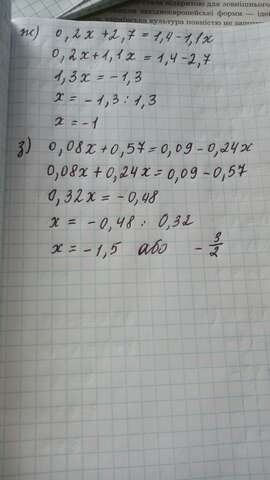 ж) 0,2x + 2,7 = 1,4 - 1,1x
0,2x + 1,1x = 1,4 - 2,7
1,3x = -1,3
x = -1,3 : 1,3
x = -1
з) 0,08x + 0,57 = 0,09 - 0,24x
0,08x + 0,24x = 0,09 - 0,57
0,32x = -0,48
x = -0,48 : 0,32
x = -1,5 або - 3/2